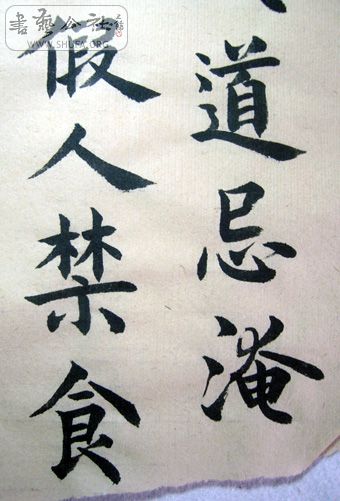 道忌淹
假人禁食
書藝公社
WWW.SHUFA.ORG